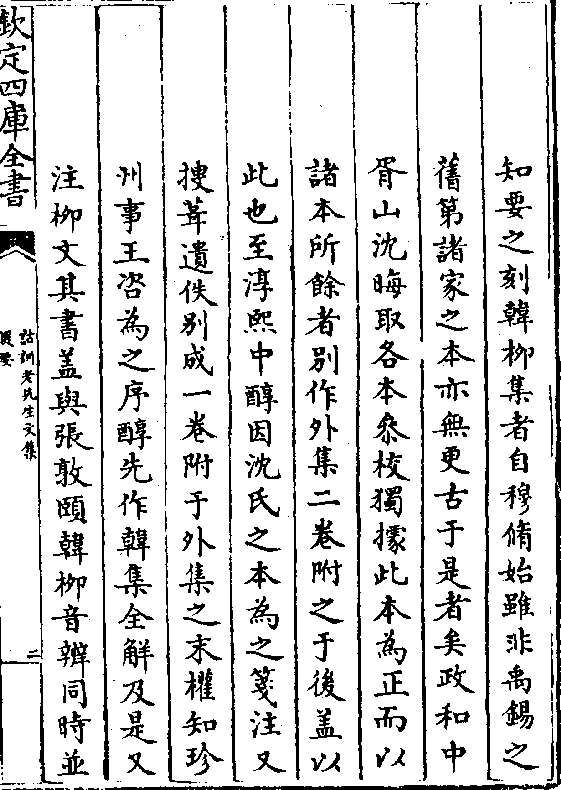 知要之刻韓柳集者自穆脩始雖非禹錫之
舊第諸家之本亦無更古于是者矣政和中
胥山沈晦取各本叅校獨據此本為正而以
諸本所餘者别作外集二卷附之于後盖以
此也至淳熙中醇因沈氏之本為之箋注又
搜葺遺佚别成一卷附于外集之末權知珍
州事王咨為之序醇先作韓集全解及是又
注柳文其書盖與張敦頤韓柳音辨同時並
欽定四庫全書
詁訓柳先生文集
提要
二